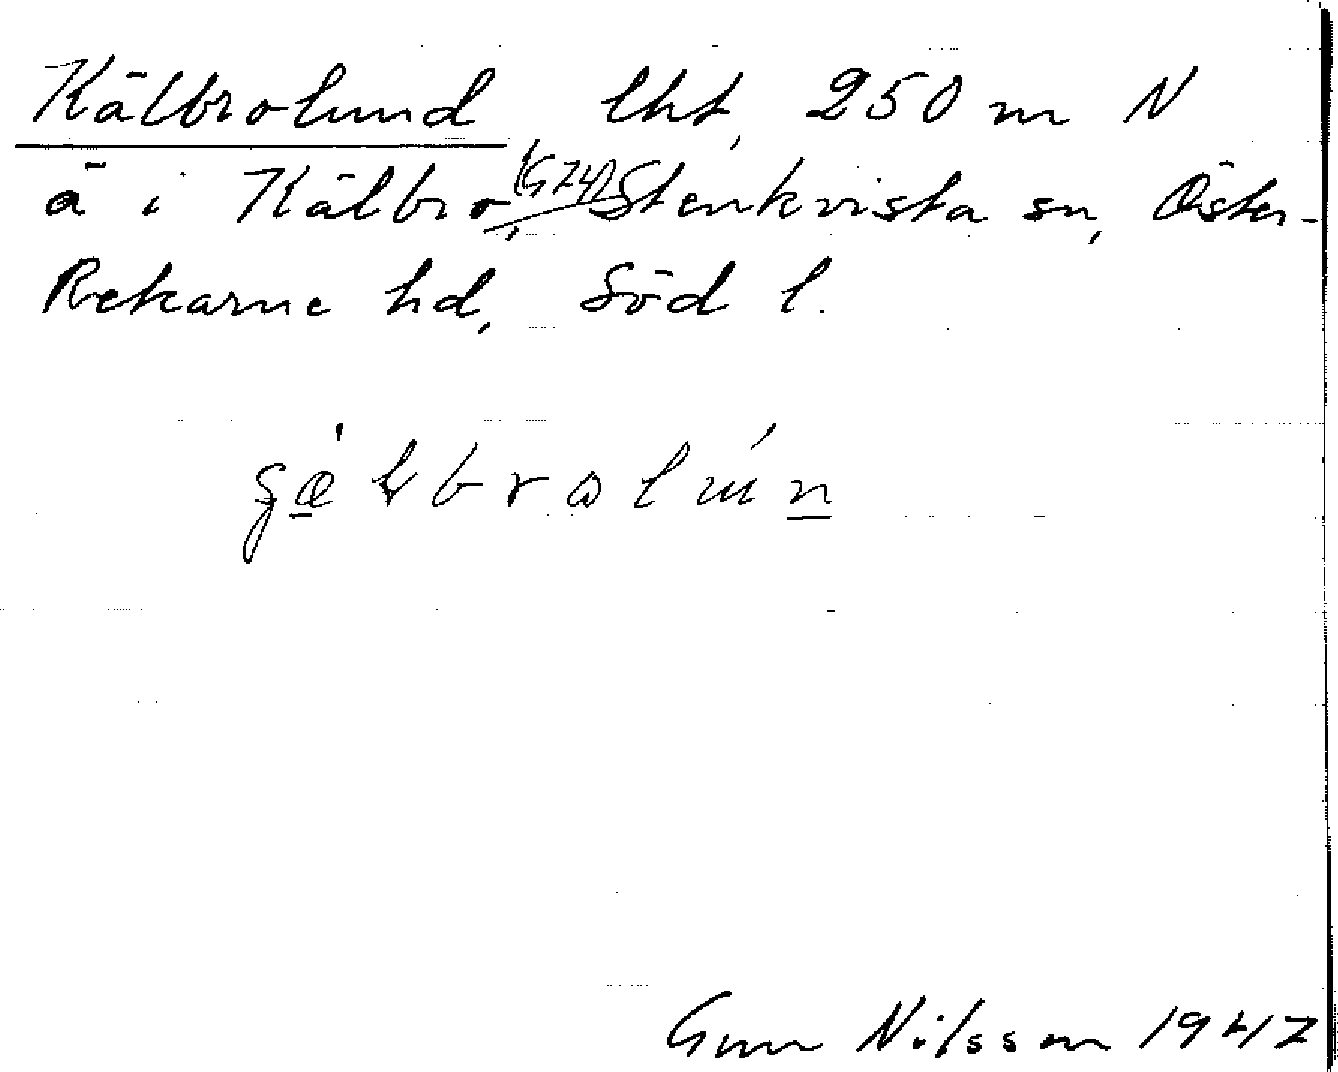 Kälbrolund, lht, 250 m N
ä i Kälbro, (GZ4) Stenkvista sn, Öster-
Rekarne hd, Söd l.
Gun Nilsson 1947